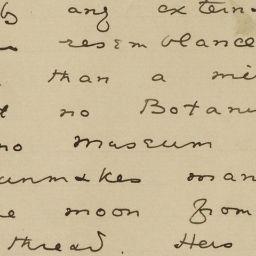 by any extern
resemblance
than a mi
no Botani
no Museum
unmakes man
moon from
thread. Hers